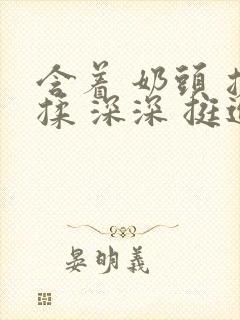 含着 奶頭 
揉 深深 挺
晏明義